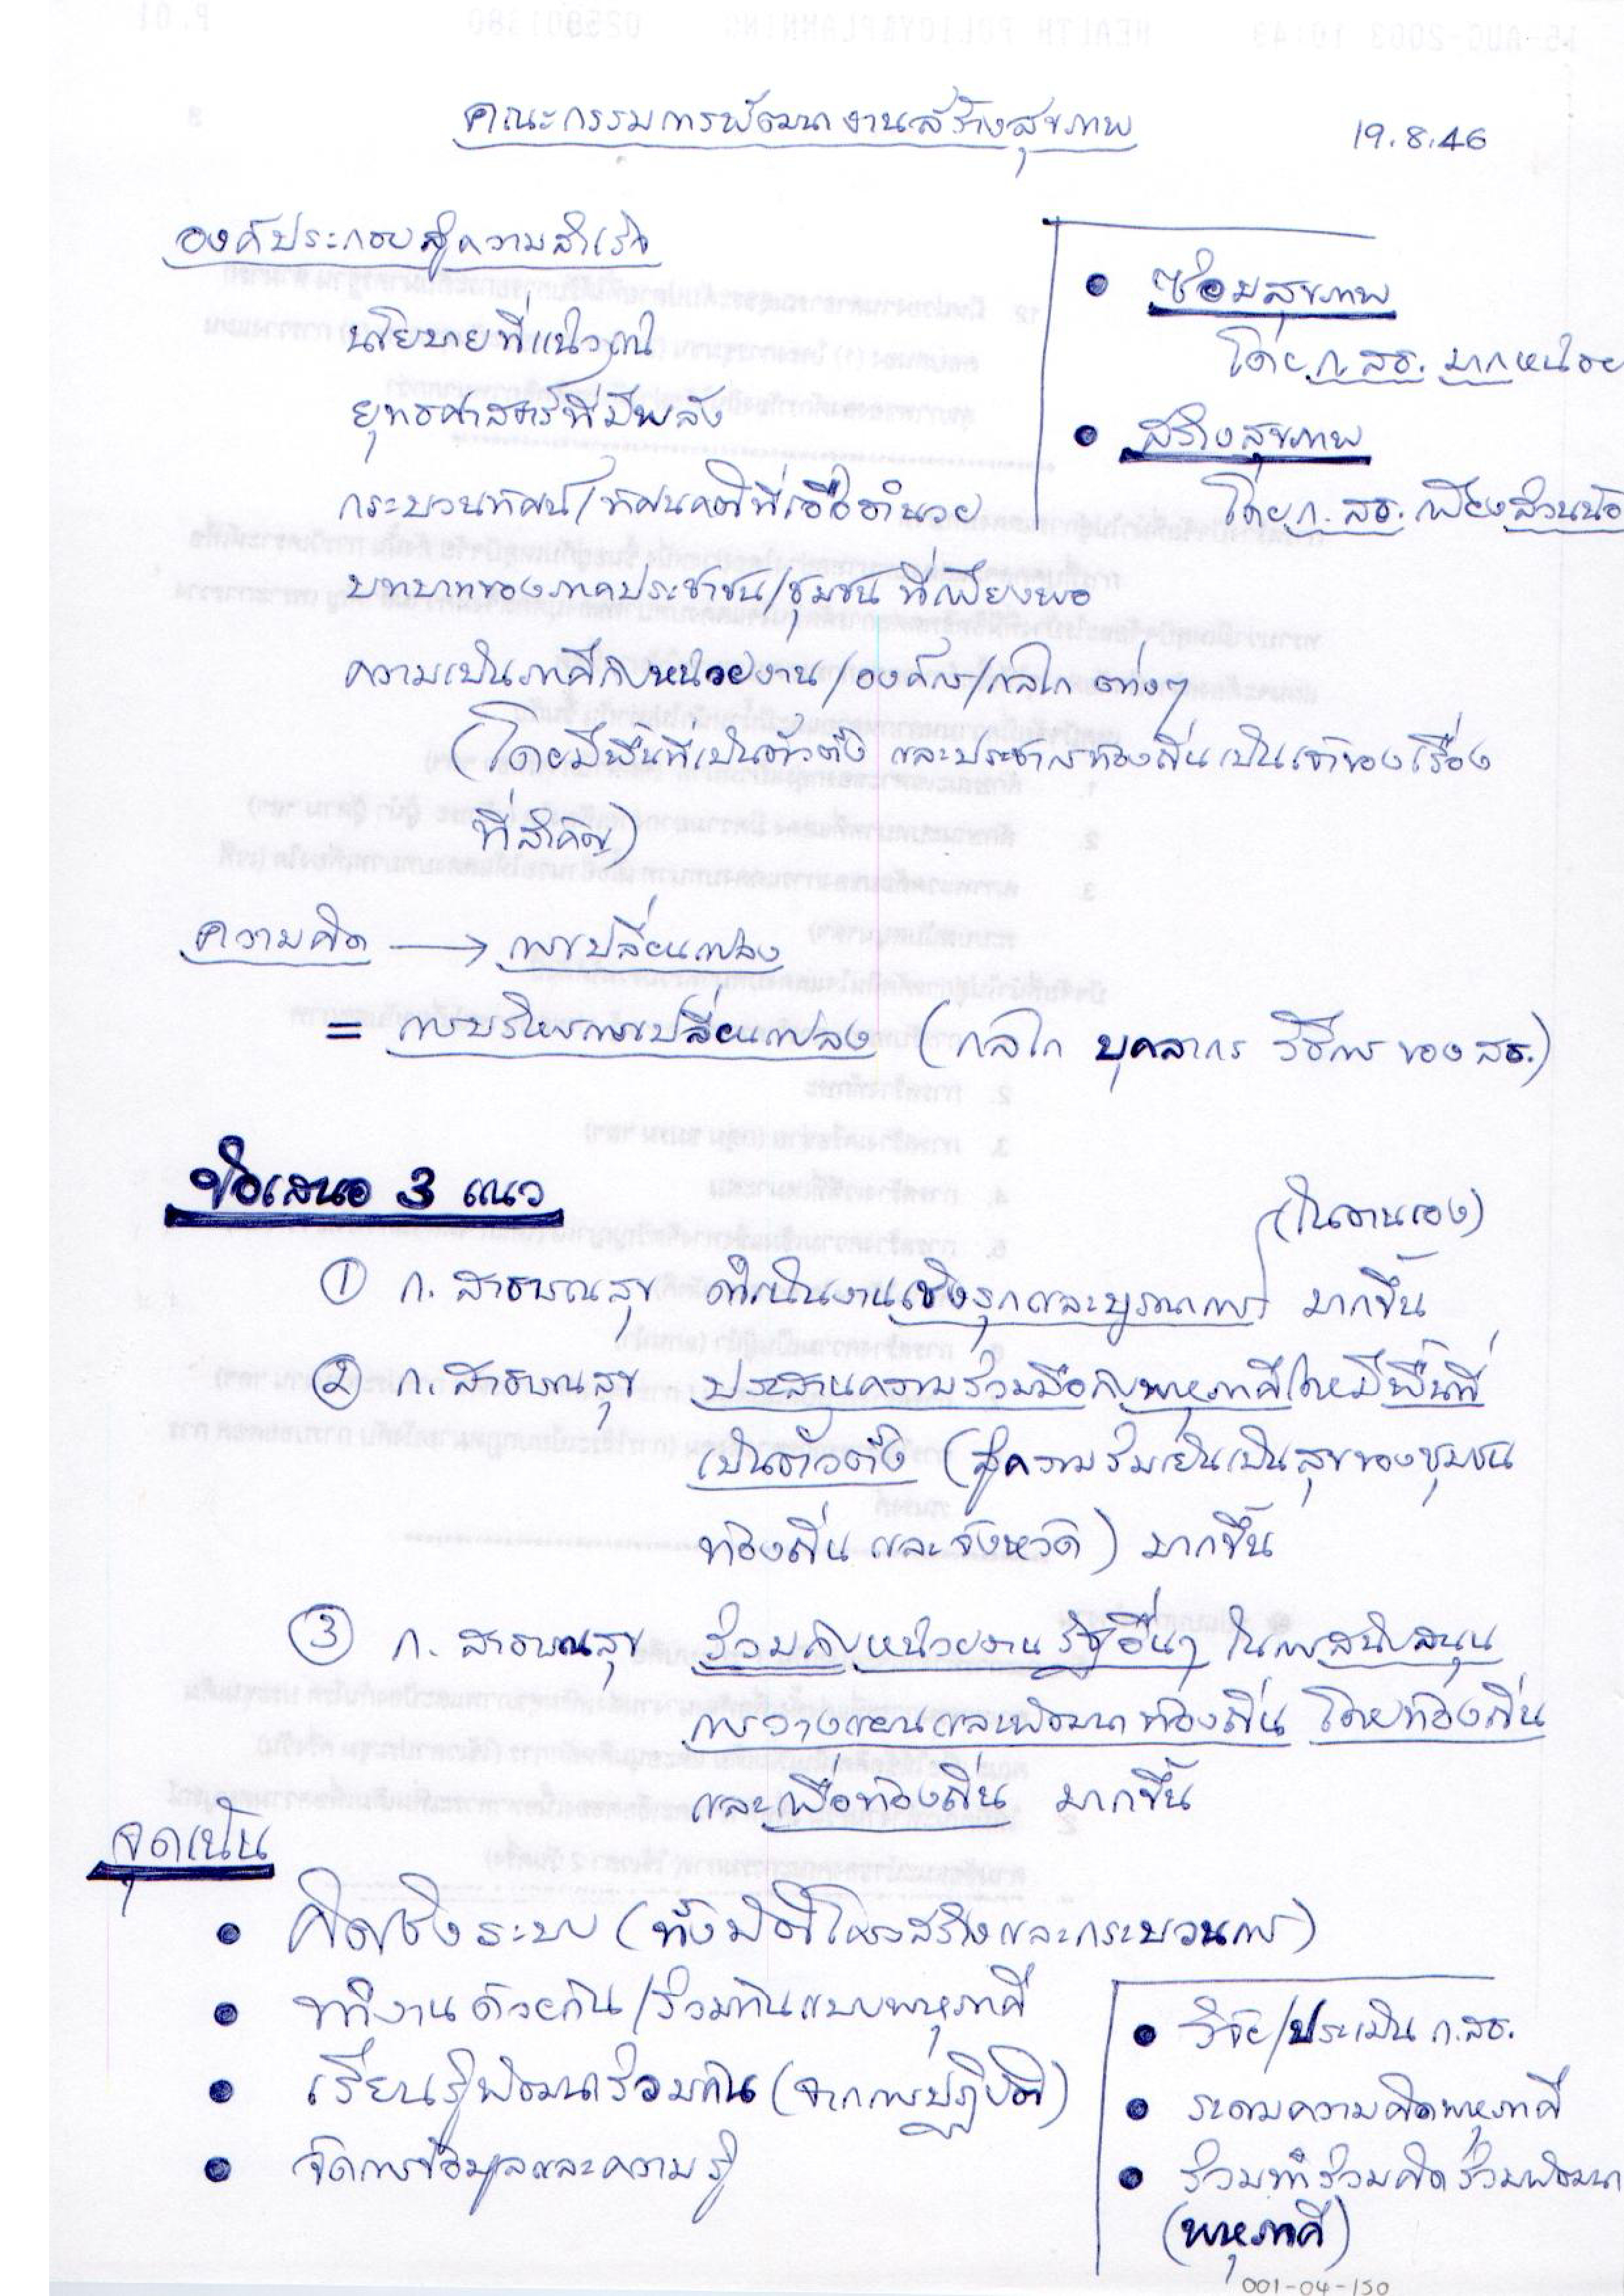 คณะกรรมการพัฒนางานสร้างสุขภาพ
19.8.46
องค์ประกอบสู่ความสำเร็จ
นโยบายที่แน่วแน่
ยุทธศาสตร์ที่มีพลัง
กระบวนทัศน์/ทัศนคติที่เอื้ออำนวย
บทบาทของภาคประชาชน/ชุมชน ที่เพียงพอ
ความเป็นภาคีกับหน่วยงาน/องค์กร/กลไก ต่างๆ
(โดยมีพื้นที่เป็นตัวตั้ง และประชาชนท้องถิ่นเป็นเจ้าของเรื่อง
ที่สำคัญ)
• ซ่อมสุขภาพ
โดย ก.สธ. มากหน่อย
• สร้างสุขภาพ
โดย ก.สธ. เพียงส่วนน้อ
ความคิด → การเปลี่ยนแปลง
= การบริหารการเปลี่ยนแปลง (กลไก บุคลากร วิธีการ ของ สธ.)
ข้อเสนอ 3 แนว
(ในงานเอง)
① ก. สาธารณสุข ดำเนินงานเชิงรุกและบูรณาการ มากขึ้น
② ก. สาธารณสุข ประสานความร่วมมือกับพหุภาคีโดยมีพื้นที่
เป็นตัวตั้ง (สู่ความร่มเย็นเป็นสุขของชุมชน
ท้องถิ่น และจังหวัด) มากขึ้น
③ ก. สาธารณสุข ร่วมกับหน่วยงานรัฐอื่นๆ ในการสนับสนุน
การวางแผนและพัฒนาท้องถิ่น โดยท้องถิ่น
และเพื่อท้องถิ่น มากขึ้น
จุดเน้น
• คิดเชิงระบบ (ทั้งมิติโครงสร้างและกระบวนการ)
• ทำงานด้วยกัน/ร่วมกันแบบพหุภาคี
• เรียนรู้พัฒนาร่วมกัน (จากการปฏิบัติ)
• จัดการข้อมูลและความรู้
• วิจัย/ประเมิน ก.สธ.
• ระดมความคิดพหุภาคี
• ร่วมทำร่วมคิดร่วมพัฒนา
(พหุภาคี)
001-04-150